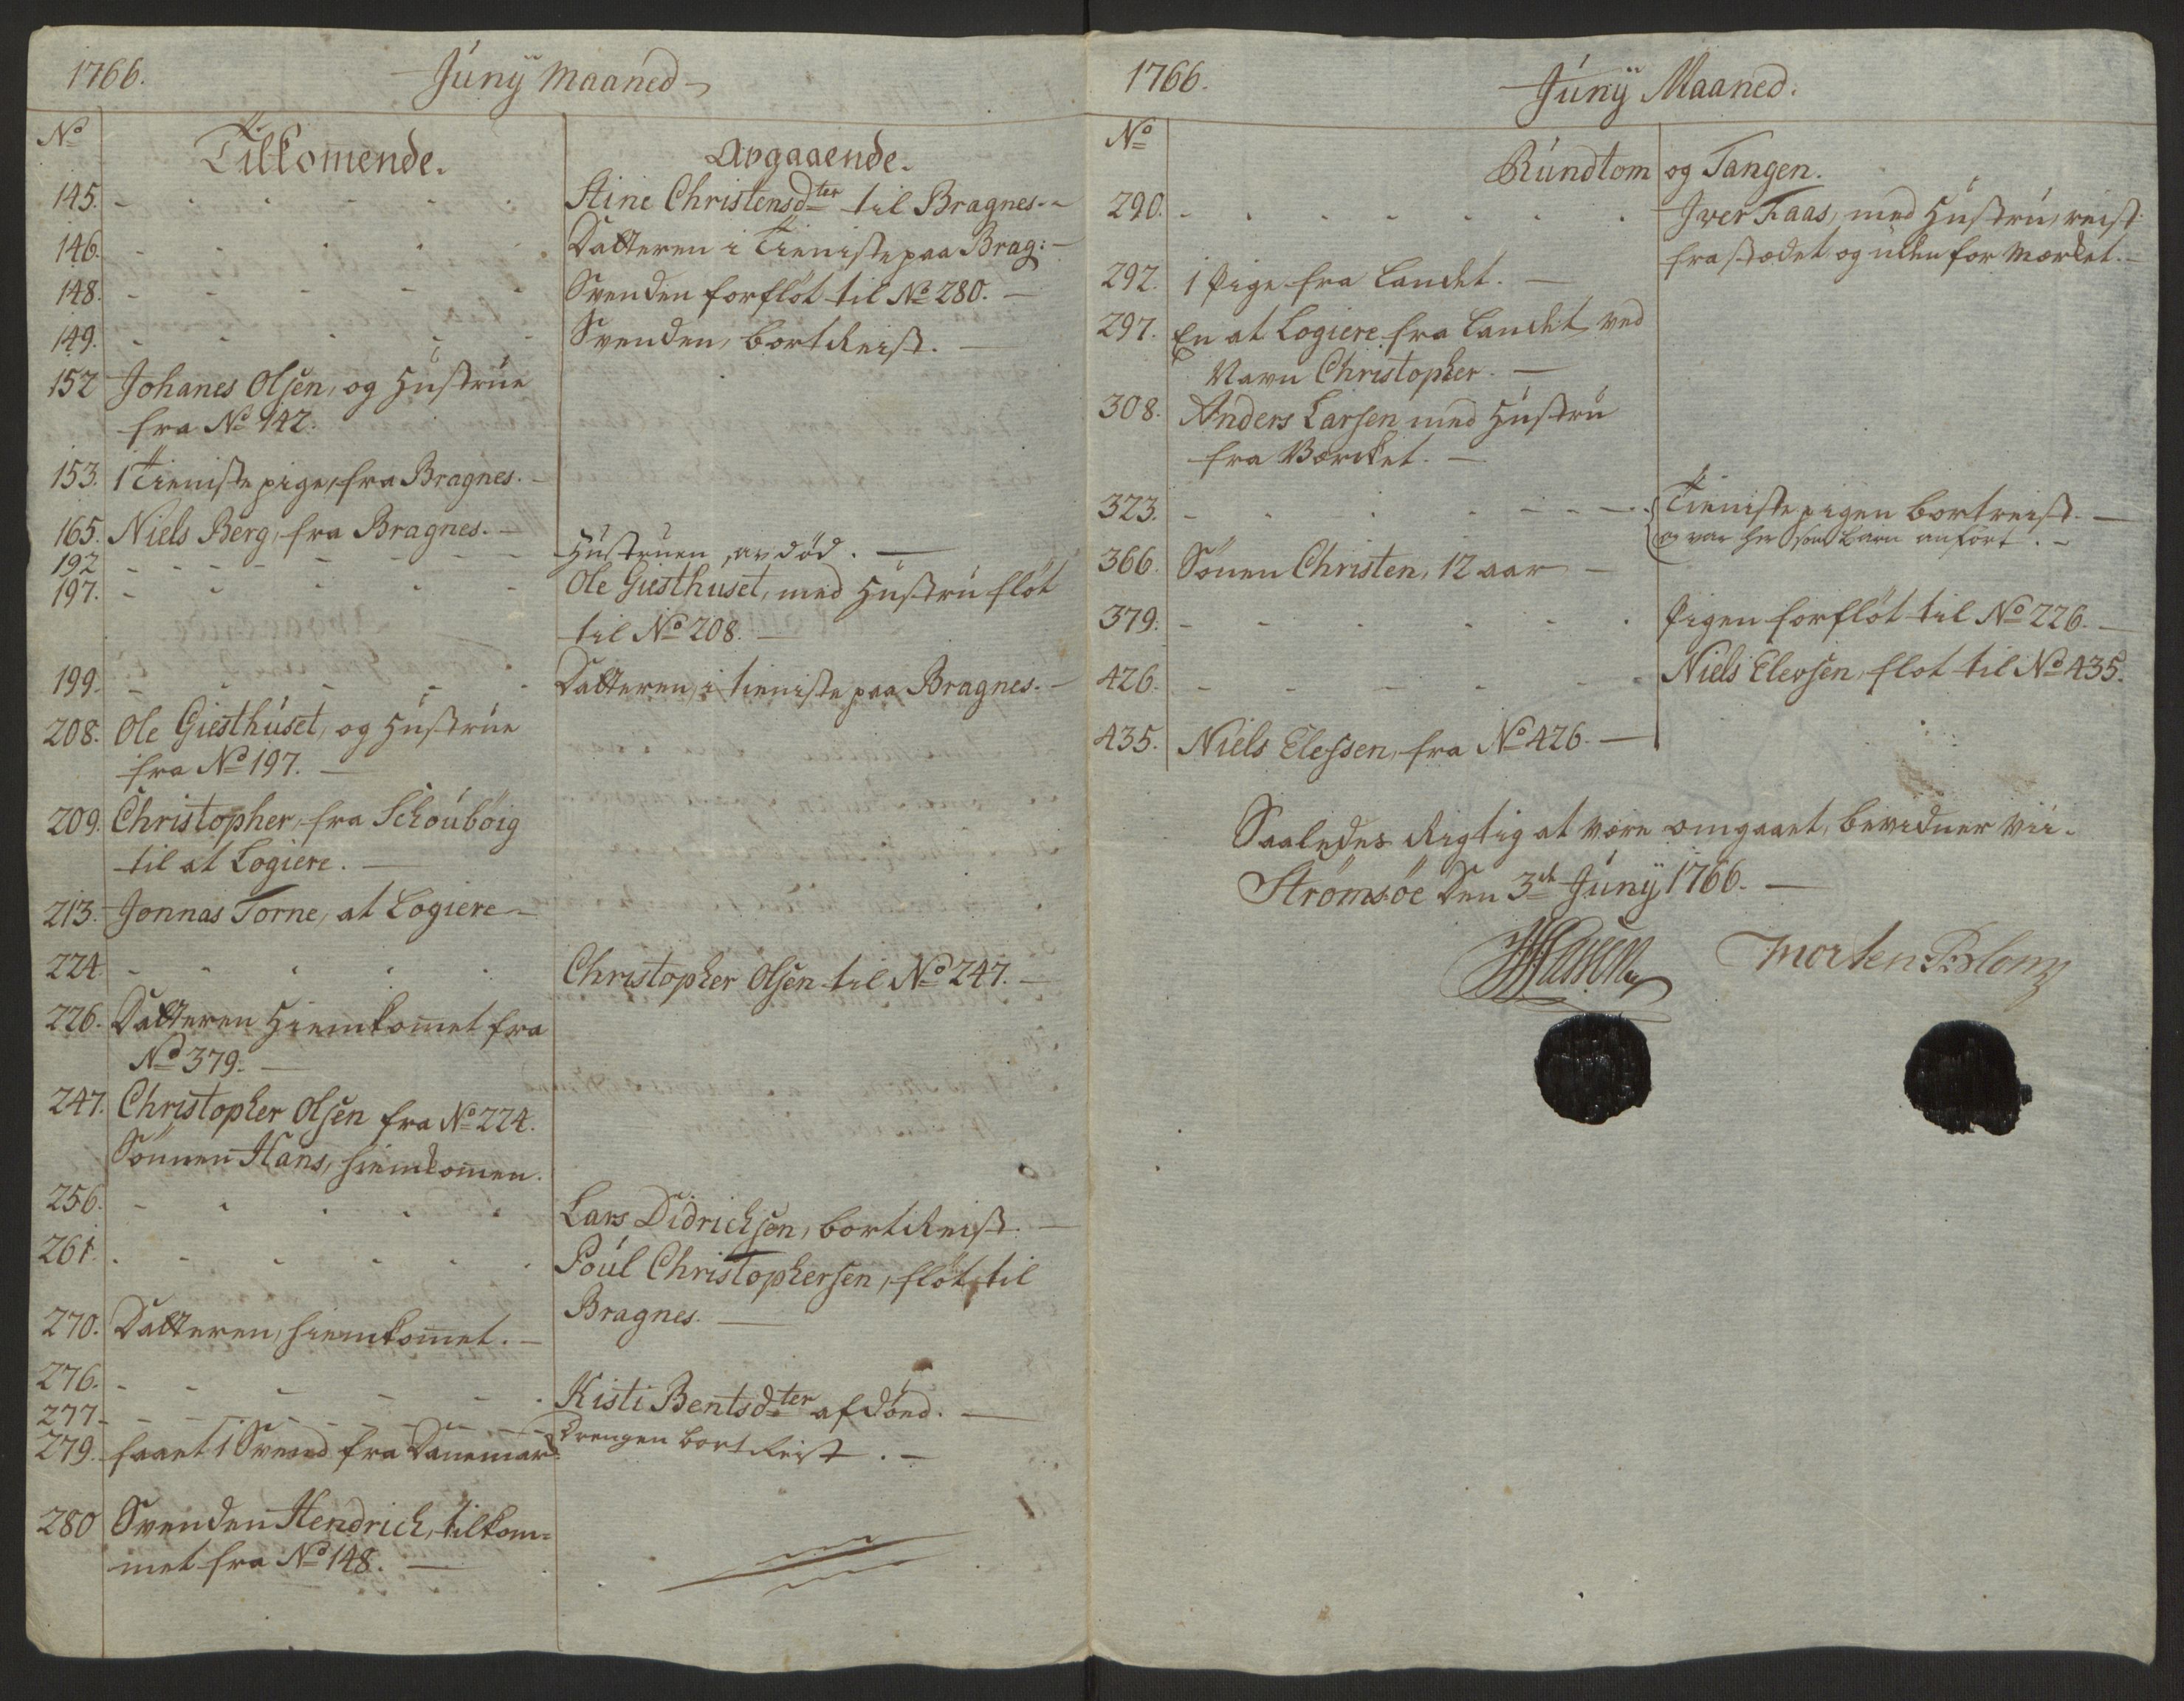 1766.
Júnÿ Maaned
No
Tilkomende.
Avgaaende.
145. Stine Christensdter til Bragnes.
146. Datteren i Tieniste paa Brag:
148. Svenden forfløt til No 280.
149. Svenden, bortReist.
152 Johanes Olsen, og Hustrúe
fra No 142.
153. 1 Tieniste pige, fra Bragnes.
165. Niels Berg, fra Bragnes.
192 Hustruen, av død.
197. Ole Giesthuset, med Hustrú fløt
til No 208.
199. Datteren, i tieniste paa Bragnes.
208. Ole Giesthúset, og Hustrúe
fra No 197.
209. Christopher, fra Schoúbøig
til at Logiere.
213. Jonnas Torne, at Logiere
224. Christopher Olsen til No 247.
226. Datteren Hiemkomet fra
No 379.
247. Christopher Olsen fra No 224.
Sønnen Hans, hiemkomen.
256. Lars Didrichsen, bortReist.
261. Poúl Christophersen, fløt til
Bragnes.
270. Datteren, hiemkomet.
276. Kisti Bentsdter afdöed.
277. Drengen bortReist.
279. faaet 1 Svend fra Danemar
280 Svenden Hendrich, tilkom=
met fra No 148.
1766.
Júnÿ Maaned.
No
Rúndtom og Tangen.
290. Iver Faas, med Hustrú, reist
fra stædet og uden for Mærket.
292. 1 Pige fra Landet.
297. En at Logiere fra Landet, ved
Navn Christopher.
308. Anders Larsen med Hústrú
fra Værcket.
323. Tieniste pigen bortreist.
og var her som barn anført.
366. Sønen Christen, 12 aar
379. Pigen forfløt til No 226.
426. Niels Elevsen, fløt til No 435.
435. Niels Elefsen, fra No 426.
Saaledes Rigtig at være omgaaet, bevidner vii.
Strømsøe Den 3de Júnÿ 1766.
Morten Blom